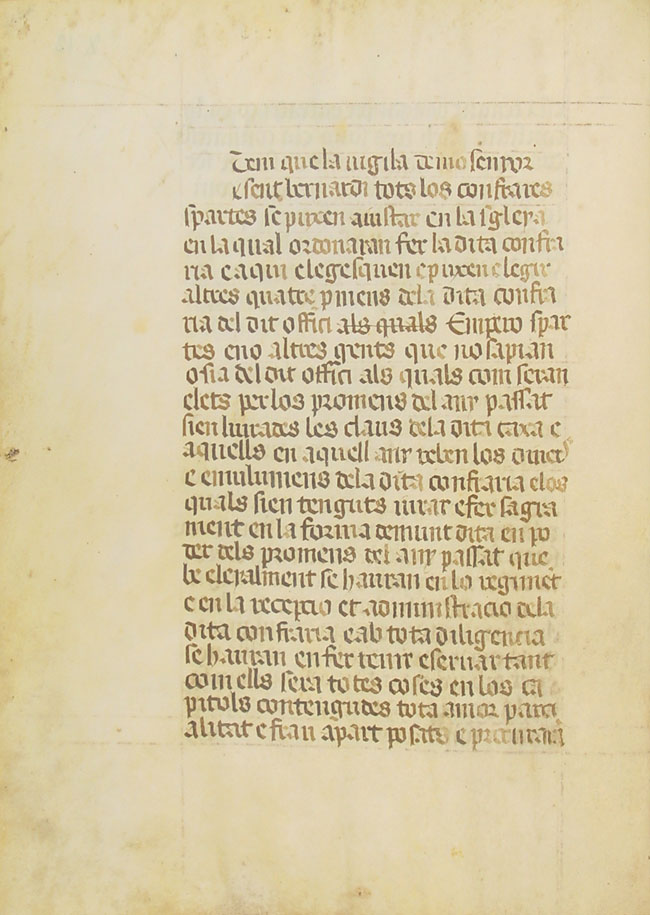 Tem que la uigila de mo senyor
sent bernardi tots los confrares
spartes se puxen aiustar en la sgleya
en la qual ordonaran fer la dita confra
ria e aqui elegesquen e puxen elegir
altres quatre pmens dela dita confra
ria del dit offici als quals Empero spar
tes eno altres gents que no sapian
o sia del dit offici als quals com seran
elets per los promens del any passat
sien liurades les claus dela dita caxa e
aquells en aquell any reben los diners
e emulumens dela dita confraria elos
quals sien tenguts iurar e fer sagra
ment en la forma demunt dita en po
der dels promens del any passat que
be eleralment se hauran en lo regimet
e en la recepcio et administracio dela
dita confraria e ab tota diligencia
se hauran en fer tenir e seruar tant
com ells sera totes coses en los ca
pitols contengudes tota amor parci
alitat e frau apart posats e procuraran